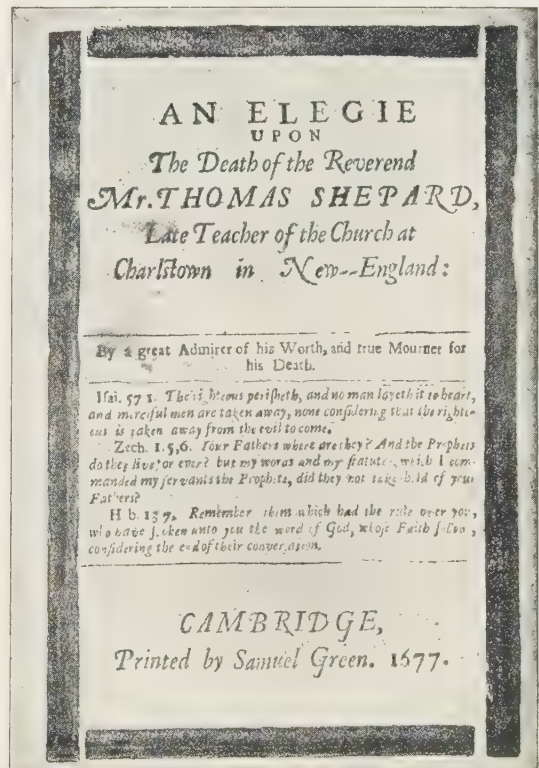 AN ELEGIE
UPON
The Death of the Reverend
Mr. THOMAS SHEPARD,
Late Teacher of the Church at
Charlstown in New--England:
By a great Admirer of his Worth, and true Mourner for
his Death.
Isai. 57 1. The righteous perisheth, and no man layeth it to heart,
and merciful men are taken away, none considering that the righte-
ous is taken away from the evil to come.
Zech. 1. 5, 6. Your Fathers where are they? And the Prophets
do they live for ever? but my words and my statutes, which I com-
manded my servants the Prophets, did they not take hold of your
Fathers?
H b. 13 7. Remember them which had the rule over you,
who have spoken unto you the word of God, whose Faith follow,
considering the end of their conversation.
CAMBRIDGE,
Printed by Samuel Green. 1677.